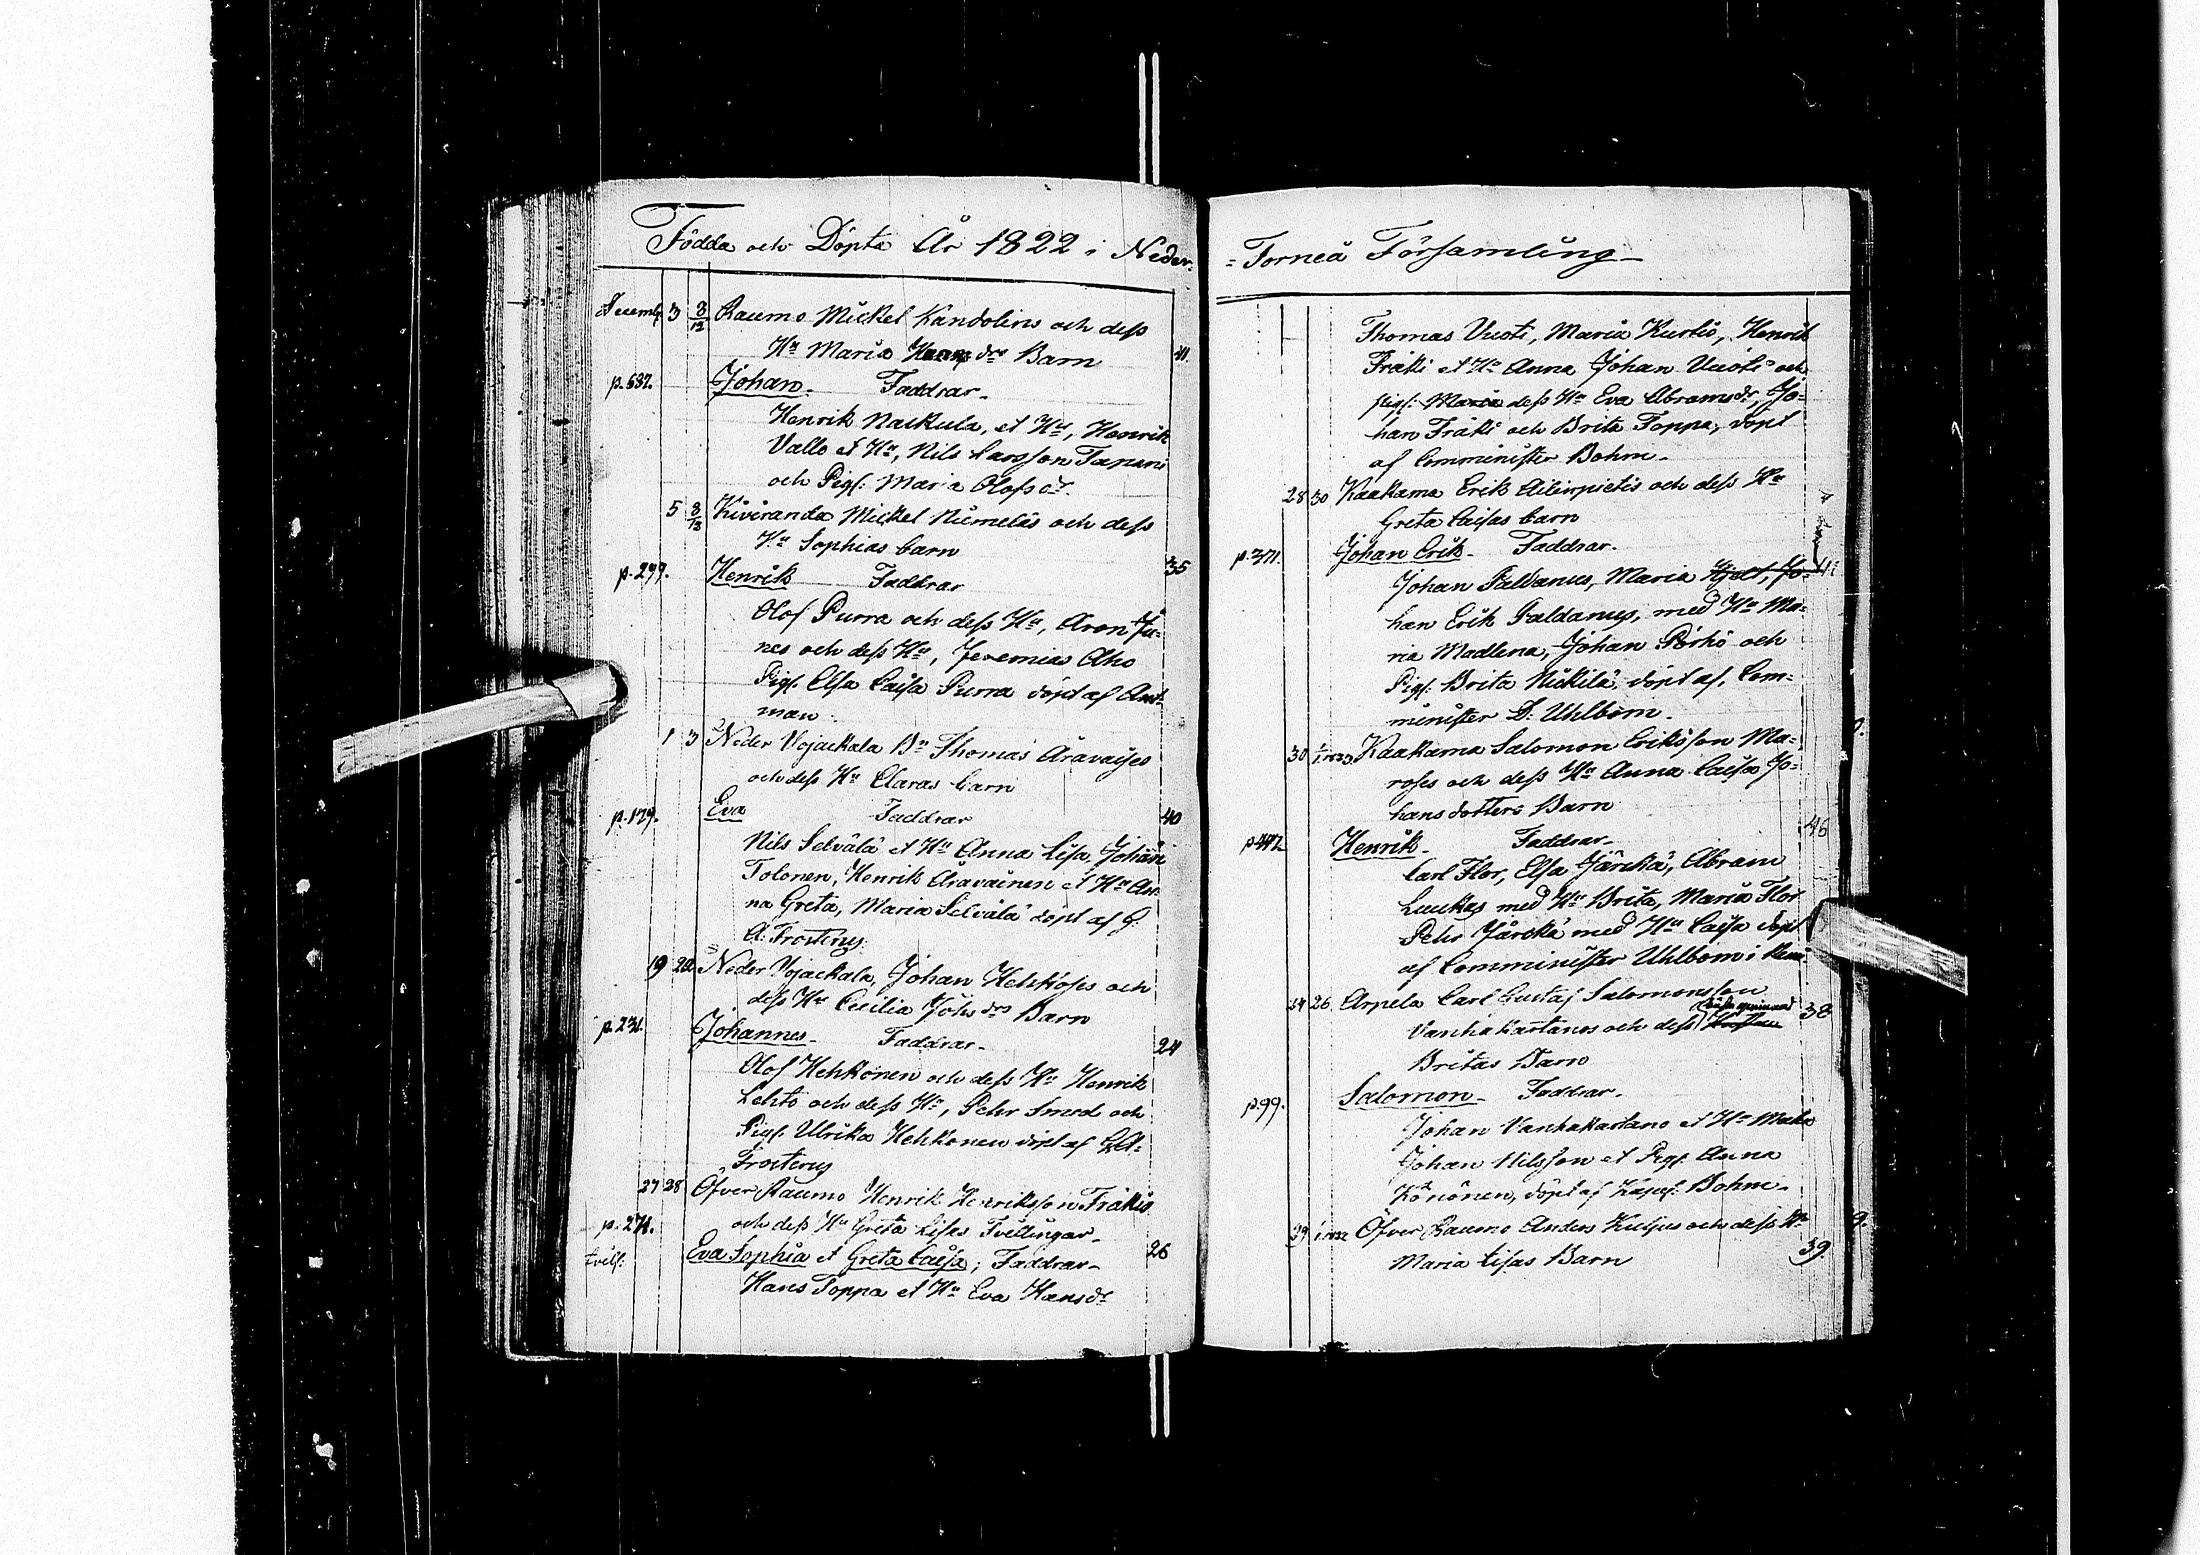 Födda och Döpta År 1822 i Neder-
Decemb. 3 8/12 Raumo Mickel Kandolins och dess
Hu Maria drs Barn 41.
p. 637. Johan. Faddrar.
Henrik Nackula, et Hu, Henrik
Vallo et Hu, Nils Larsson Tapani
och Pigs: Maria Olofs dr.
5 8/13 Kiviranda Mickel Niemeläs och dess
Hu Sophias barn
p. 299. Henrik Faddrar 35
Olof Purra och dess Hu, Aron Ju-
nes och dess Hu, Jeremias Aho
Pigs. Elsa Caisa Purra döpt af Ant-
man.
1 3 Neder Vojackala Bn Thomas Aravaises
och dess Hu Claras barn
p. 179. Eva Faddrar 40
Nils Selvälä et Hu Anna Lisa, Johan
Tolonen, Henrik Aravainen et Hu An-
na Greta, Maria Selvälä döpt af G.
A. Frosterus.
19 22 Neder Vojackala, Johan Hehkoses och
dess Hu Cecilia Johs drs Barn
p. 231. Johannes. Faddrar. 24
Olof Hehkonen och dess Hu Henrik
Lehto och dess Hu, Pehr Smed och
Pigs. Ulrika Hehkonen döpt af G.A.
Frosterus
27 28 Öfver Raumo Henrik Henriksson Fräkis
p. 271. och dess Hu Greta Lisas Tvillingar.
tvill: Eva Sophia et Greta Caisa; Faddrar. 26
Hans Toppa et Hu Eva Hansdr
=Torneå Församling
Thomas Vuoti, Maria Kurtis, Henrik
Fräki et Hu Anna Johan Vuoti och
pigs: Maria dess Hu Eva Abramsdr, Jo-
han Fräki och Brita Toppa, döpt
af Comminister Bohm.
28 30 Kaakama Erik och dess Hu
Greta Caisas barn
p. 371. Johan Erik. Faddrar. 41
Johan Paldanus, Maria Jo-
han Erik Paldanus, med Hu Ma-
ria Madlena, Johan Pörhö och
Pigs: Brita Nickilä, döpt af, Com-
minister D. Uhlbom.
30 1/1 1823. Kaakama Salomon Eriksson Ma-
roses och dess Hu Anna Caisa Jo-
hans dotters Barn
p 442 Henrik. Faddrar. 46
Carl Flor, Elsa Järckä, Abram
Luukas med Hu Brita, Maria Flor
Pehr Järckä med Hu Caisa döpt
af Comminister Uhlbom i Kemi
24 26 Arpela Carl Gustaf Salomonsson
Vanhakartanos och dess 38
Britas Barn
p. 99. Salomon. Faddrar.
Johan Vanhakartano et Hu
Johan Nilsson et Pigs. Anna
Könönen, döpt af Bohm.
29 Öfver Raumo Anders Kuljus och dess Hu
Maria Lisas Barn 39.